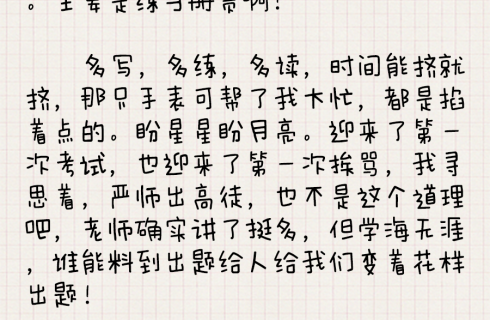 。主要是练习册贵啊！
多写，多练，多读，时间能挤就
挤，那只手表可帮了我大忙，都是掐
着点的。盼星星盼月亮。迎来了第一
次考试，也迎来了第一次挨骂，我寻
思着，严师出高徒，也不是这个道理
吧，老师确实讲了挺多，但学海无涯
，谁能料到出题给人给我们变着花样
出题！